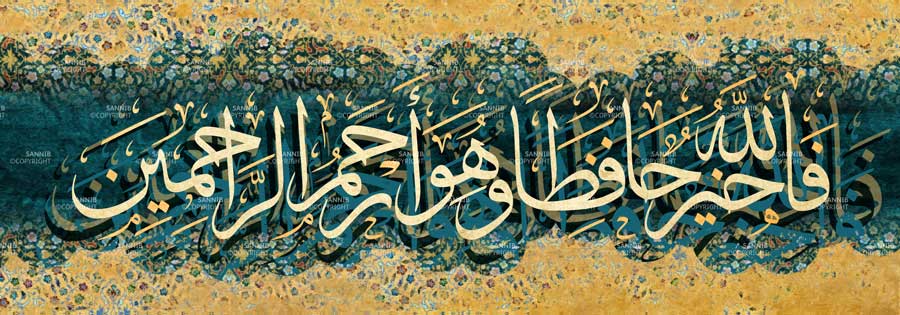 فَاللَّهُ خَيْرٌ حَافِظًا وَهُوَ أَرْحَمُ الرَّاحِمِينَ
SANNIB
©COPYRIGHT